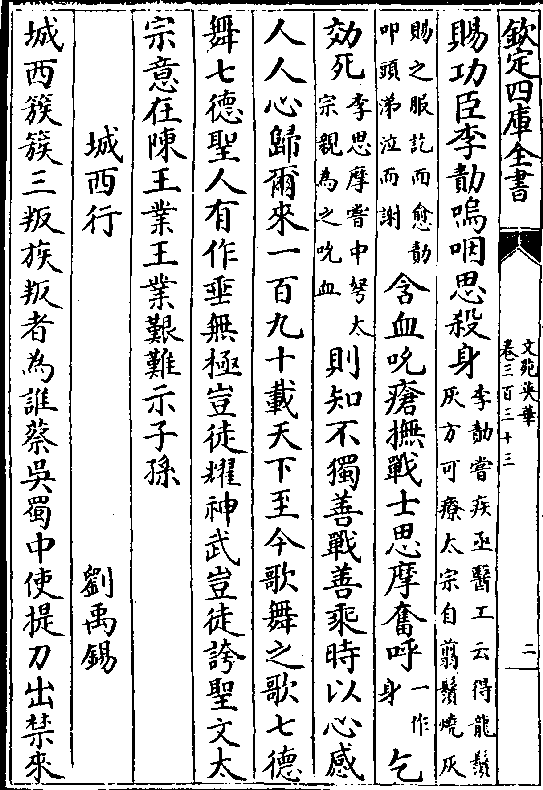 欽定四庫全書
文苑英華
卷三百三十三
二
賜功臣李勣嗚咽思殺身李勣嘗疾亟醫工云得龍鬚灰方可療太宗自翦鬚燒灰
賜之服訖而愈勣叩頭涕泣而謝含血吮瘡撫戰士思摩奮呼一作身乞
効死李思摩嘗中弩太宗親為之吮血則知不獨善戰善乘時以心感
人人心歸爾來一百九十載天下至今歌舞之歌七德
舞七德聖人有作垂無極豈徒耀神武豈徒誇聖文太
宗意在陳王業王業艱難示子孫
城西行 劉禹錫
城西簇簇三叛族叛者為誰蔡吳蜀中使提刀出禁來